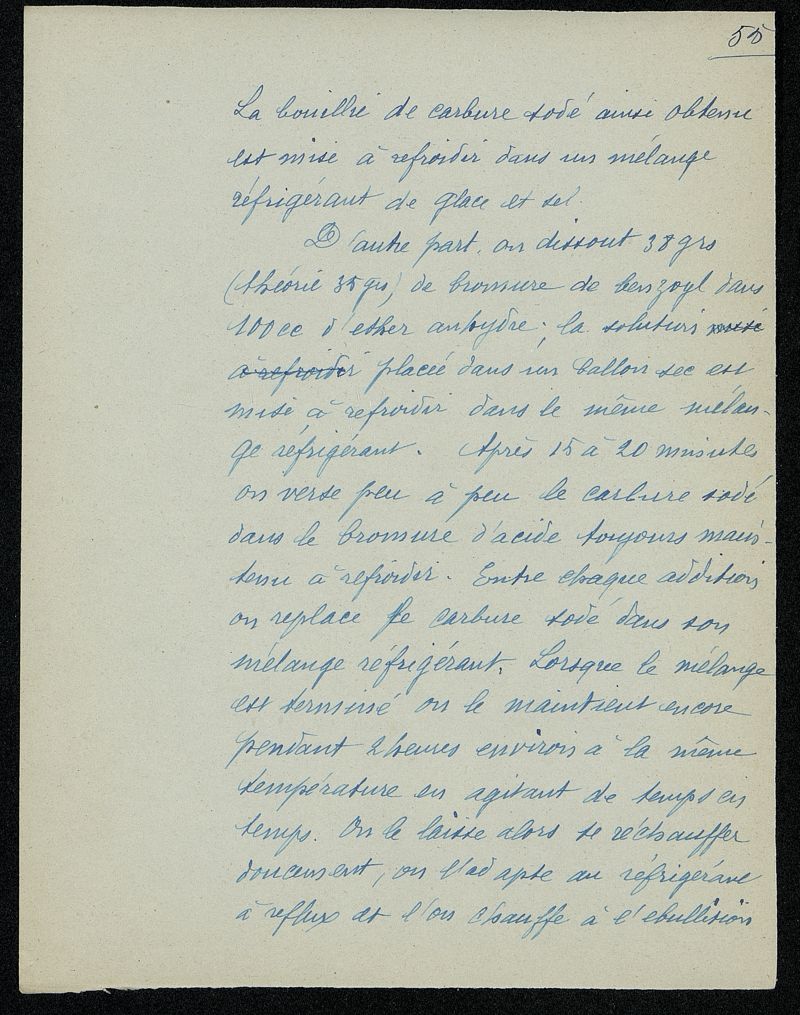 55
La bouillie de carbure sodé ainsi obtenu
est mise à refroidir dans un mélange
réfrigérant de glace et sel.
D'autre part, on dissout 38 grs
(théorie 35 grs) de bromure de benzoyl dans
100cc d'ether anhydre; la solution mise
à refroidir placée dans un ballon sec est
mise à refroidir dans le même mélan-
ge réfrigérant. Après 15 à 20 minutes
on verse peu à peu le carbure sodé
dans le bromure d'acide toujours main-
tenu à refroidir. Entre chaque addition
on replace le carbure sodé dans son
mélange réfrigérant. Lorsque le mélange
est terminé on le maintient encore
pendant 2 heures environ à la même
température en agitant de temps en
temps. On le laisse alors se réchauffer
doucement, on l'adapte au réfrigérant
à reflux et l'on chauffe à l'ebullition